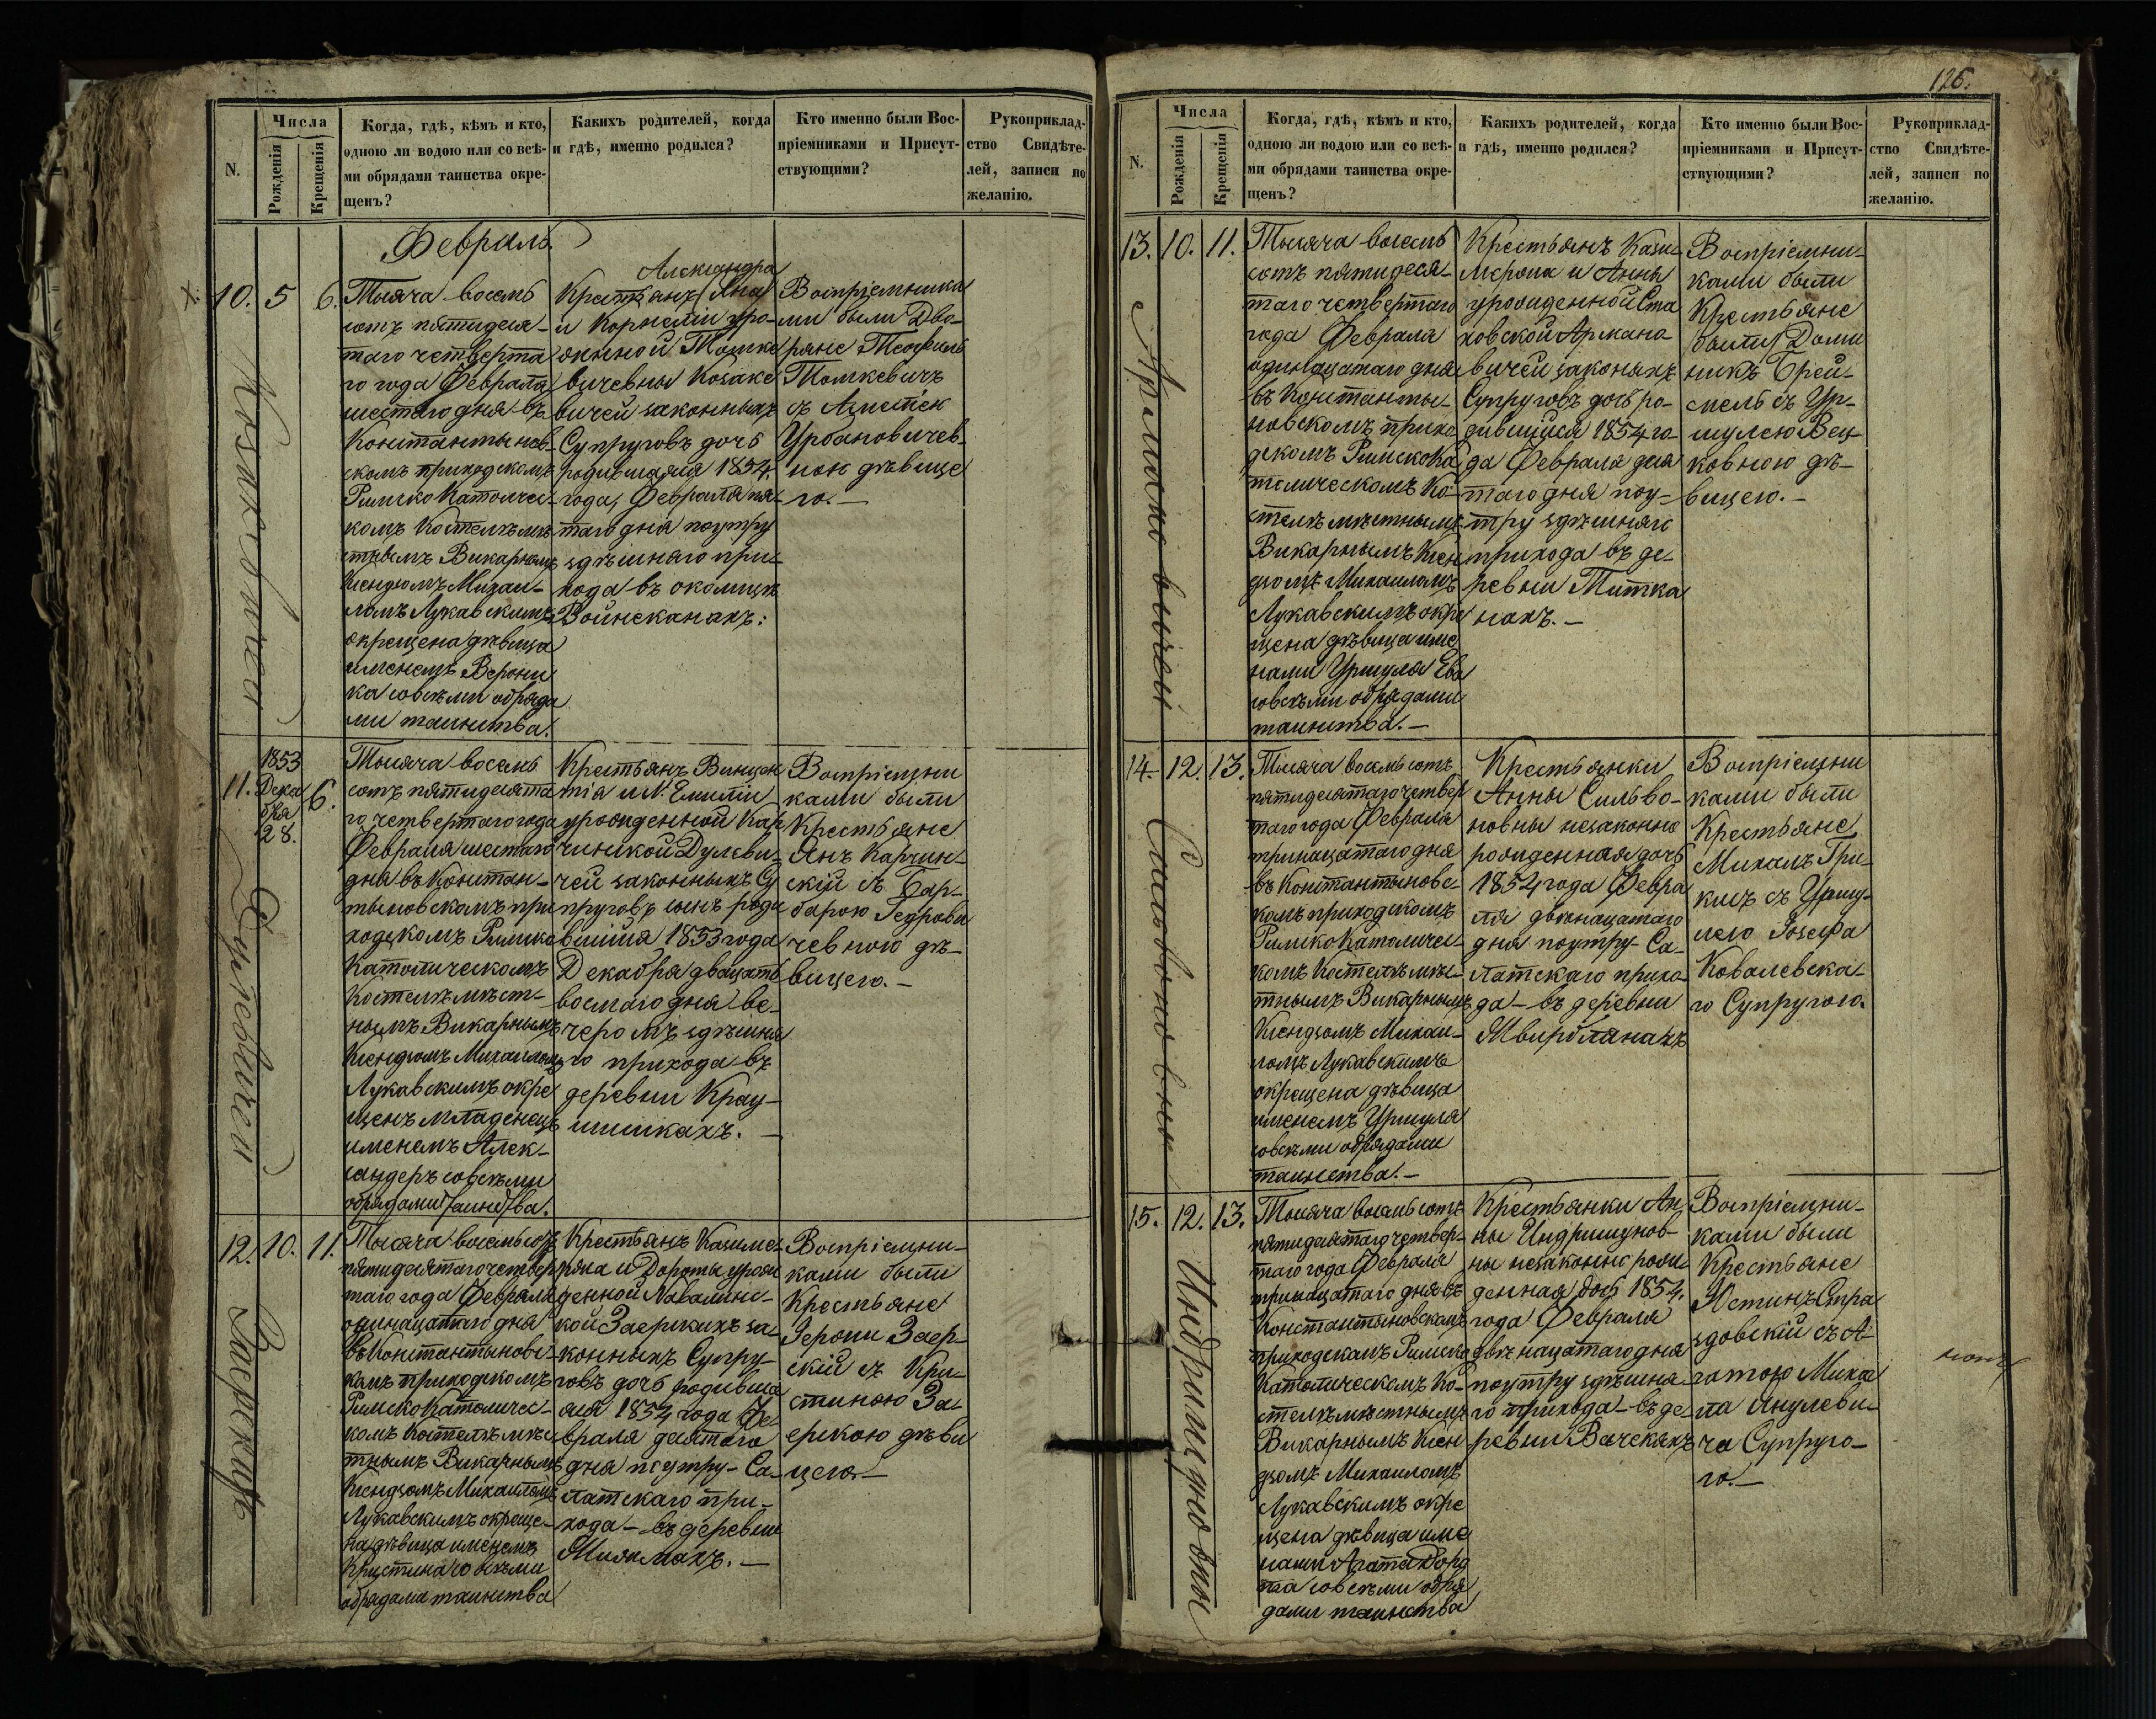 N.
Числа
Рожденія
Крещенія
Когда, гдѣ, кѣмъ и кто,
одною ли водою или со всѣ-
ми обрядами таинства окре-
щенъ?
Какихъ родителей, когда
и гдѣ, именно родился?
Кто именно были Вос-
пріемниками и Присут-
ствующими?
Рукоприклад-
ство Свидѣте-
лей, записи по
желанію.
Февраль
10. 5 6.
Козакевичей
Тысяча восемь
сотъ пятидеся-
таго четверта
го года Февраля
шестаго дня въ
Константынов-
скомъ приходскомъ
Римско Католичес-
комъ Костелѣ мѣ
стнымъ Викарнымъ
Ксендзомъ Михаи-
ломъ Лукавскимъ
окрещена дѣвица
именемъ Верони
ка со всѣми обряда
ми таинства.
Александра
Крестьянъ Яна
и Корнелии уро-
жденной Томке
вичевны Козаке
вичей законныхъ
Супруговъ дочь
родившаяся 1854.
года, Февраля пя-
таго дня поутру
здѣшняго при-
хода въ околицѣ
Войнсканахъ:
Воспріемника
ми были Дво-
ряне Теофиль
Томкевичъ
съ
Урбановичев-
ною дѣвице
ю.
11. 1853
Дека
бря
28. 6.
Дулевичей
Тысяча восемь
сотъ пятидесята
го четвертаго года
Февраля шестаго
дня въ Констан-
тыновскомъ при
ходскомъ Римско
Католическомъ
Костелѣ мѣст-
нымъ Викарнымъ
Ксендзомъ Михаиломъ
Лукавскимъ окре
щенъ младенецъ
именемъ Алек-
сандеръ со всѣми
обрядами таинства.
Крестьянъ Винцен
тія и Емиліи
урожденной Кар
чинской Дулеви-
чей законныхъ Су
пруговъ сынъ роди
вшійся 1853 года
Декабря двацать
восмаго дня ве-
черомъ здѣшня
го прихода въ
деревни Крау-
шишкахъ.
Воспріемни
ками были
Крестьяне
Янъ Карчин-
скій съ Бар-
барою Гедрови
чевною дѣ-
вицею.
12. 10. 11.
Заерскихъ
Тысяча восемь сотъ
пятидесятаго четвер
таго года Февраля
одинацатаго дня
въ Константыновс-
комъ приходскомъ
Римско Католичес-
комъ Костелѣ мѣс
тнымъ Викарнымъ
Ксендзомъ Михаиломъ
Лукавскимъ окреще-
на дѣвица именемъ
Крыстина со всѣми
обрядами таинства
Крестьянъ Казиме-
ряка и Дороты урож
денной Навалинс-
кой Заерскихъ за-
конныхъ Супру-
говъ дочь родивша
яся 1854 года Фе-
враля десятаго
дня поутру - Са-
латскаго при-
хода - въ деревни
Миколахъ.
Воспріемни-
ками были
Крестьяне
Геронимъ Заер-
скій съ Кри-
стиною За-
ерскою дѣви
цею.
126.
N.
Числа
Рожденія
Крещенія
Когда, гдѣ, кѣмъ и кто,
одною ли водою или со всѣ-
ми обрядами таинства окре-
щенъ?
Какихъ родителей, когда
и гдѣ, именно родился?
Кто именно были Вос-
пріемниками и Присут-
ствующими?
Рукоприклад-
ство Свидѣте-
лей, записи по
желанію.
13. 10. 11.
Армановичей
Тысяча восемь
сотъ пятидеся-
таго четвертаго
года Февраля
одинацатаго дня
въ Константы-
новскомъ прихо-
дскомъ Римско Ка
толическомъ Ко-
стелѣ мѣстнымъ
Викарнымъ Ксен
дзомъ Михаиломъ
Лукавскимъ окре
щена дѣвица име
нами Уршуля Ева
со всѣми обрядами
таинства.
Крестьянъ Кази-
мерона и Анны
урожденной Ста
ховской Армано
вичей законныхъ
Супруговъ дочь ро-
дившаяся 1854 го-
да Февраля деся
таго дня поу-
тру здѣшняго
прихода въ де-
ревни Титка
нахъ.
Воспріемни-
ками были
Крестьяне
были Доми
никъ Брей-
смель съ Ур-
шулею Вец-
ковною дѣ-
вицею.
14. 12. 13.
Сильвоновны
Тысяча восемь сотъ
пятидесятаго четвер
таго года Февраля
тринацатаго дня
въ Константыновс-
комъ приходскомъ
Римско Католичес-
комъ Костелѣ мѣс-
тнымъ Викарнымъ
Ксендзомъ Михаи-
ломъ Лукавскимъ
окрещена дѣвица
именемъ Уршуля
со всѣми обрядами
таинства.
Крестьянки
Анны Сильво-
новны незаконно
рожденная дочь
1854 года Февра
ля двѣнацатаго
дня поутру Са-
латскаго прихо-
да - въ деревни
Жвирбланахъ
Воспріемни
ками были
Крестьяне
Михалъ Гри-
кисъ съ Уршу-
лею Іозефа
Ковалевска-
го Супругою.
15. 12. 13.
Индришуновны
Тысяча восемь сотъ
пятидесятаго четвер-
таго года Февраля
тринацатаго дня въ
Константыновскомъ
приходскомъ Римско
Католическомъ Ко-
стелѣ мѣстнымъ
Викарнымъ Ксен
дзомъ Михаиломъ
Лукавскимъ окре
щена дѣвица име
нами Агата Доро
та со всѣми обря
дами таинства
Крестьянки Ан
ны Индришунов-
ны незаконно рожд
денная дочь 1854.
года Февраля
двѣнацатаго дня
поутру здѣшня-
го прихода - въ де
ревни Вачеканъ
Воспріемни-
ками были
Крестьяне
Юстинъ Стра
здовскій съ А-
гатою Миха
ла Янулеви-
ча Супруго-
ю.